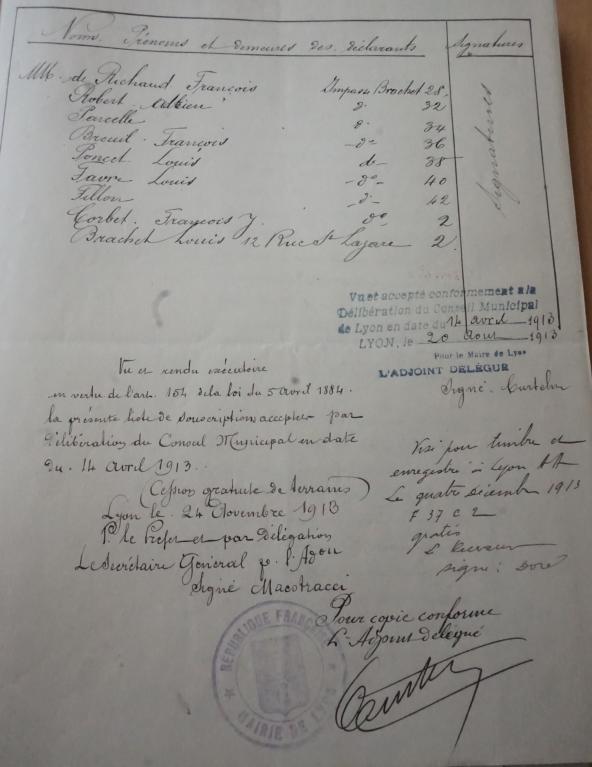 Noms, Prénoms et demeures des déclarants
Signatures
MM. de Richaud François Impasse Brachet 28
Robert dº 32
Parcelle dº 34
Breuil François -dº- 36
Poncet Louis dº 38
Favre Louis -dº- 40
Fillon -dº- 42
Corbet François J. dº 2
Brachet Louis 12 Rue St Lazare 2
Signatures
Vu et accepté conformément à la
Délibération du Conseil Municipal
de Lyon en date du 14 avril 1913
LYON, le 20 aout 1913
Pour le Maire de Lyon
L'ADJOINT DÉLÉGUÉ
Signé
Vu et rendu exécutoire
en vertu de l'art. 154 de la loi du 5 avril 1884.
la présente liste de souscriptions acceptée par
délibération du Conseil Municipal en date
du 14 avril 1913.
(Cession gratuite de terrains)
Lyon le 24 Novembre 1913
Pr le Préfet et par délégation
Le Secrétaire Général pr l'Adon
Signé
Visé pour timbre et
enregistré à Lyon AA
Le quatre décembre 1913
F 37 C 2
gratis
Le Receveur
signé : Doré
Pour copie conforme
L'Adjoint délégué
RÉPUBLIQUE FRANÇAISE
MAIRIE DE LYON